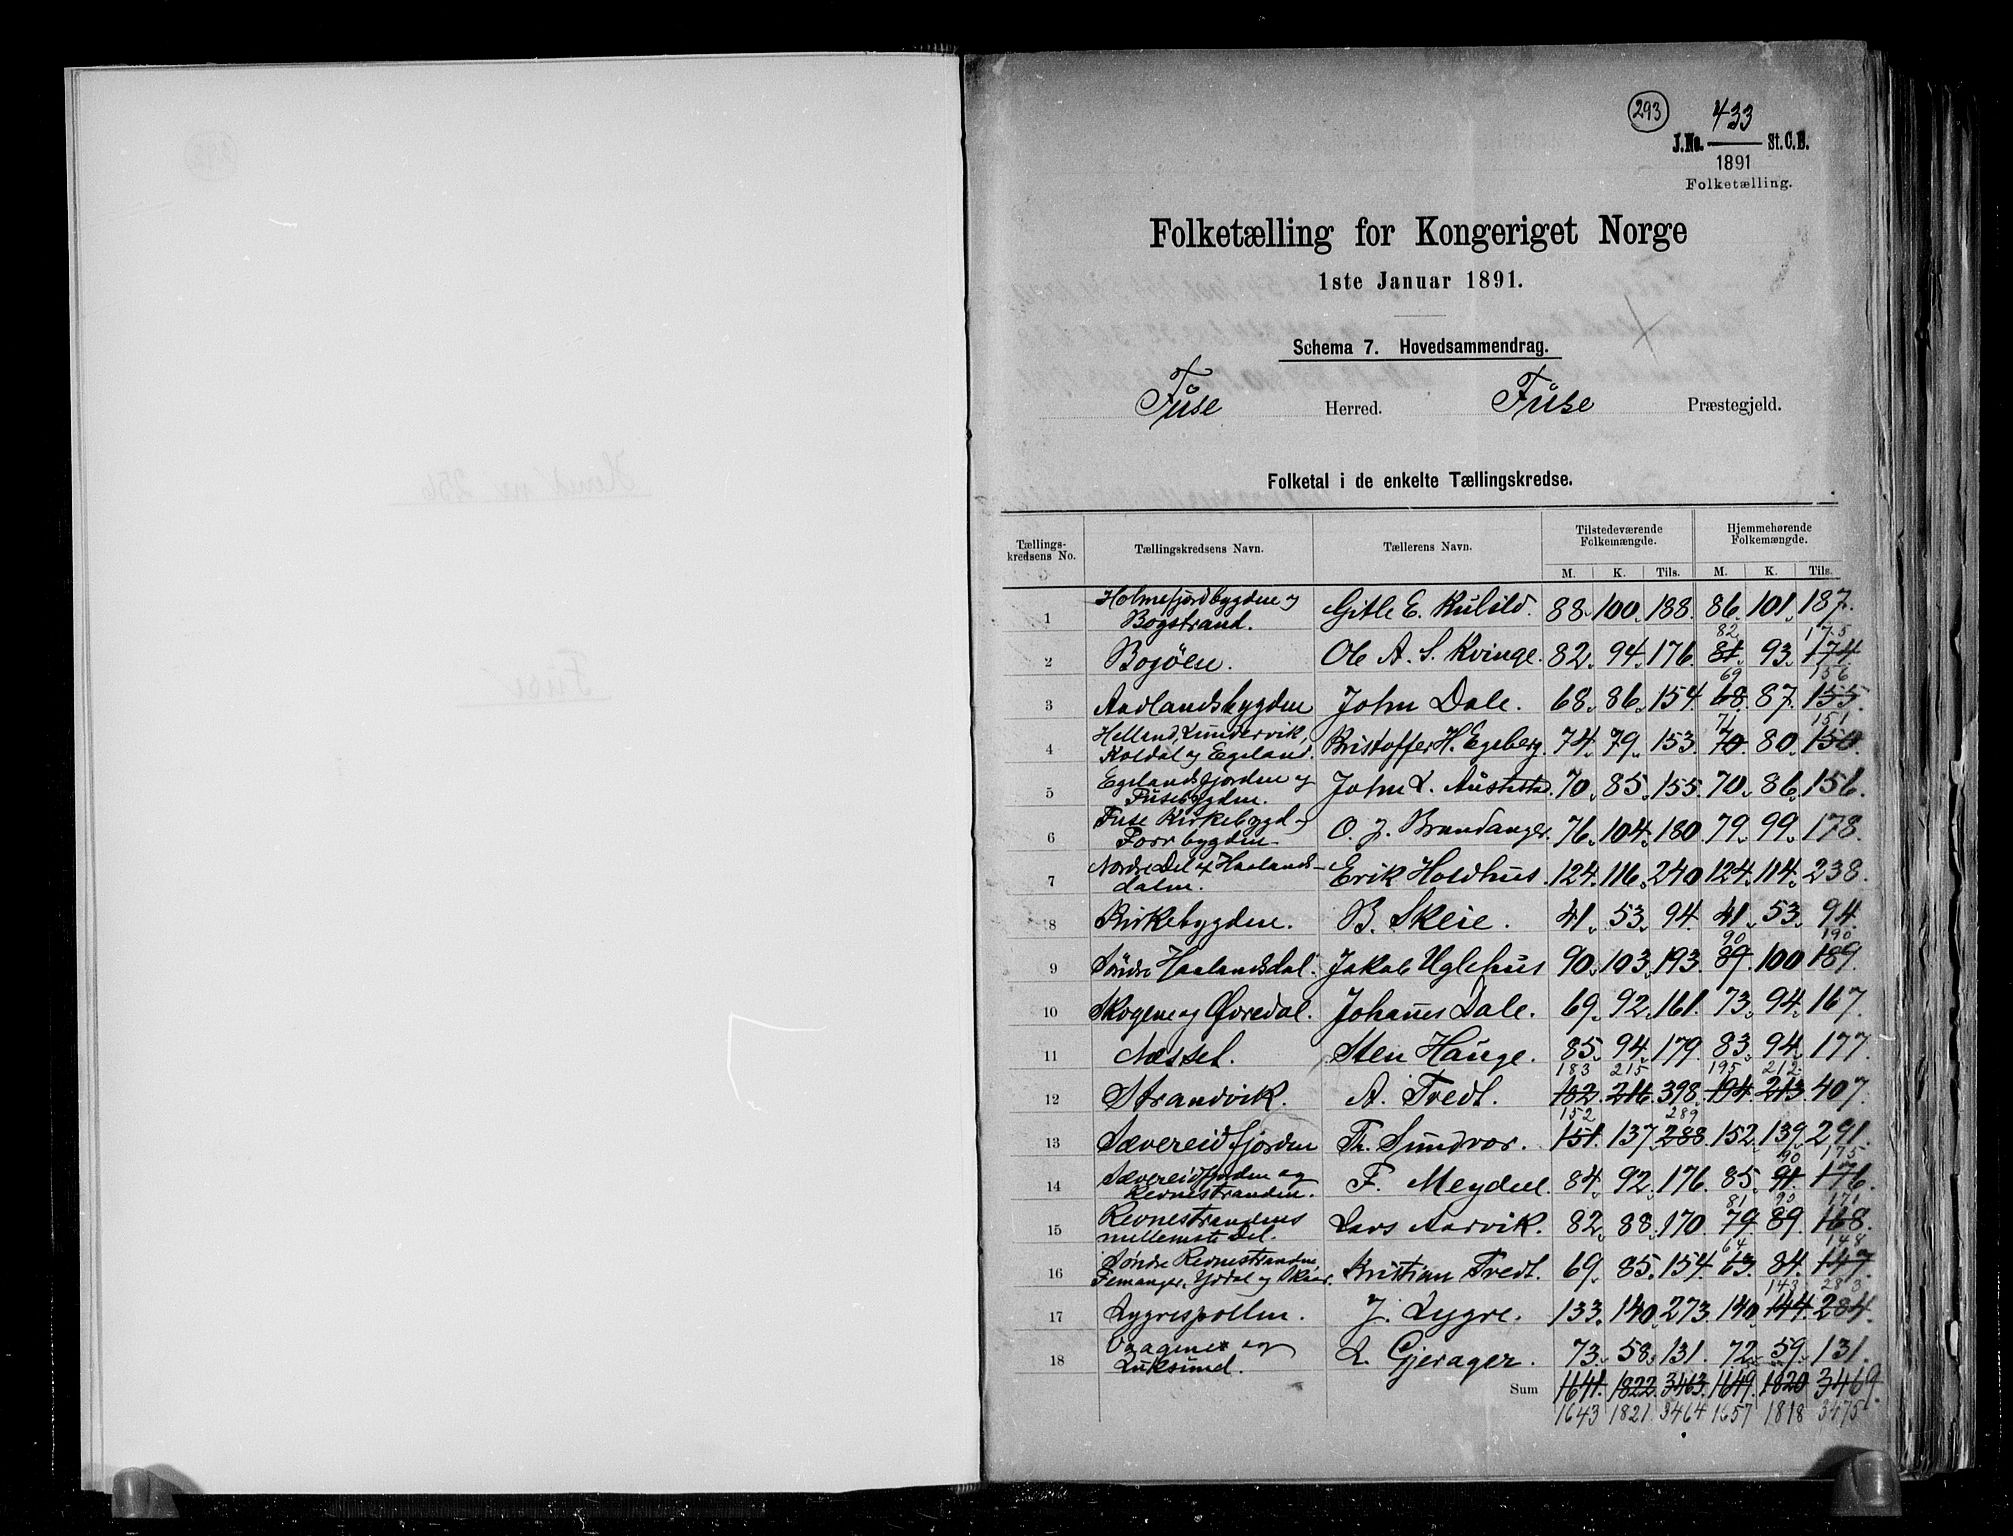 293
433
J.No. St.C.B.
1891
Folketælling.
Folketælling for Kongeriget Norge
1ste Januar 1891.
Schema 7. Hovedsammendrag.
Fuse Herred. Fuse Præstegjeld.
Folketal i de enkelte Tællingskredse.
Tællings-kredsens No. Tællingskredsens Navn. Tællerens Navn. Tilstedeværende Folkemængde. Hjemmehørende Folkemængde.
M. K. Tils. M. K. Tils.
1 Holmefjordbygden og Bogstrand. Gitle E. Kulild. 88. 100. 188. 86. 101. 187.
82 175
2 Bogøen. Ole A. S. Kvinge. 82. 94. 176. 81. 93. 174
69 156
3 Aadlandsbygden John Dale. 68. 86. 154 68. 87. 155.
71 151
4 Helland, Lundervik, Koldal og Egeland. Kristoffer H. Egeberg. 74. 79. 153. 70. 80. 150.
5 Egelandsfjorden og Fusebygden. John L. Austestad. 70. 85. 155. 70. 86. 156.
6 Fuse Kirkebygd og Forrbygden O. J. Brandanger. 76. 104. 180. 79. 99. 178.
7 Nordre Del af Haalandsdalen. Erik Holdhus. 124. 116. 240. 124. 114. 238.
8 Kirkebygden. B. Skeie. 41. 53. 94. 41. 53. 94.
90 190
9 Søndre Haalandsdal. Jakob Uglehus 90. 103. 193. 89. 100. 189.
10 Skogene og Øvredal. Johannes Dale. 69. 92. 161. 73. 94. 167.
11 Næsset. Sten Hauge. 85. 94. 179. 83. 94. 177.
183 215 195 212
12 Strandvik. A. Tvedt. 182. 216. 398. 194. 213. 407.
152 289
13 Sævereidfjorden Th. Sundvor. 151. 137. 288. 152. 139. 291.
90 175
14 Sævereidfjorden og Revnestranden. F. Meydell. 84. 92. 176. 85. 91. 176.
81 90 171
15 Revnestrandens mellemste Del. Lars Aarvik. 82. 88. 170. 79. 89. 168.
64 148
16 Søndre Revnestranden, Femanger, Yddal og Skaar. Kristian Tvedt. 69. 85. 154. 63. 84. 147.
143 283
17 Lygrespollen. J. Lygre. 133. 140. 273. 140. 144. 284.
18 Vaagene og Luksund. L. Gjerager. 73. 58. 131. 72. 59. 131.
Sum 1641. 1822. 3463. 1649. 1820 3469.
1643 1821 3464 1657 1818 3475